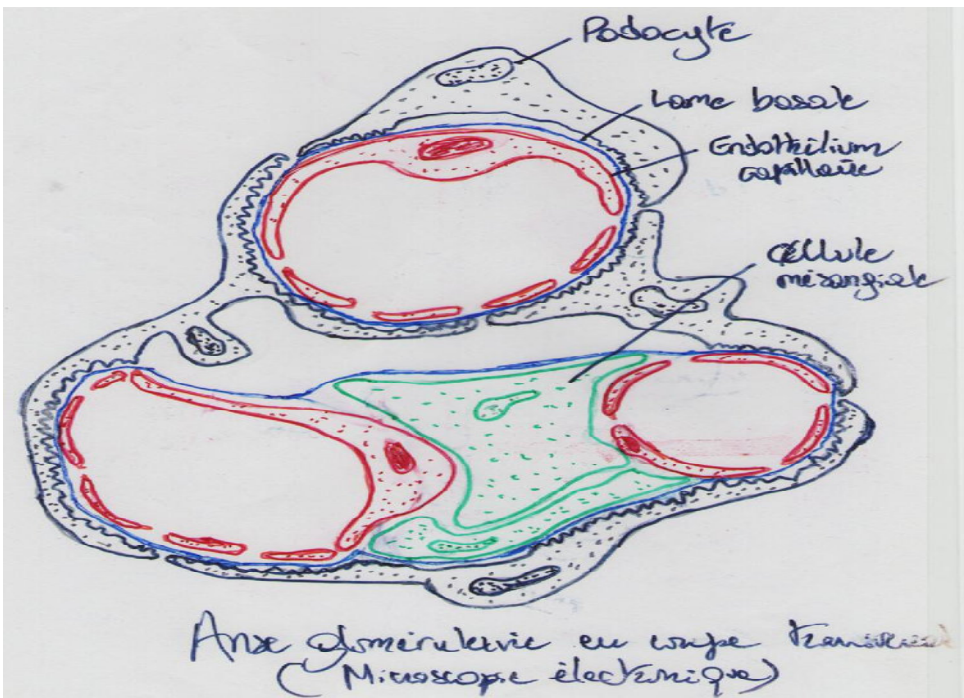 Podocyte
Lame basale
Endothélium
capillaire
Cellule
mésangiale
Anse glomérulaire en coupe
(Microscopie électronique)